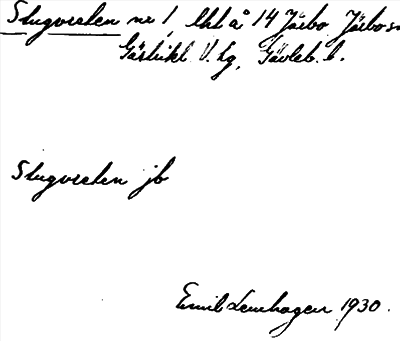 Slugvreten nr 1, lht å 14 Järbo Järbo sn
Gästrikl. V. tg, Gävleb. l.
Slugvreten jb
Emil Lenhagen 1930.